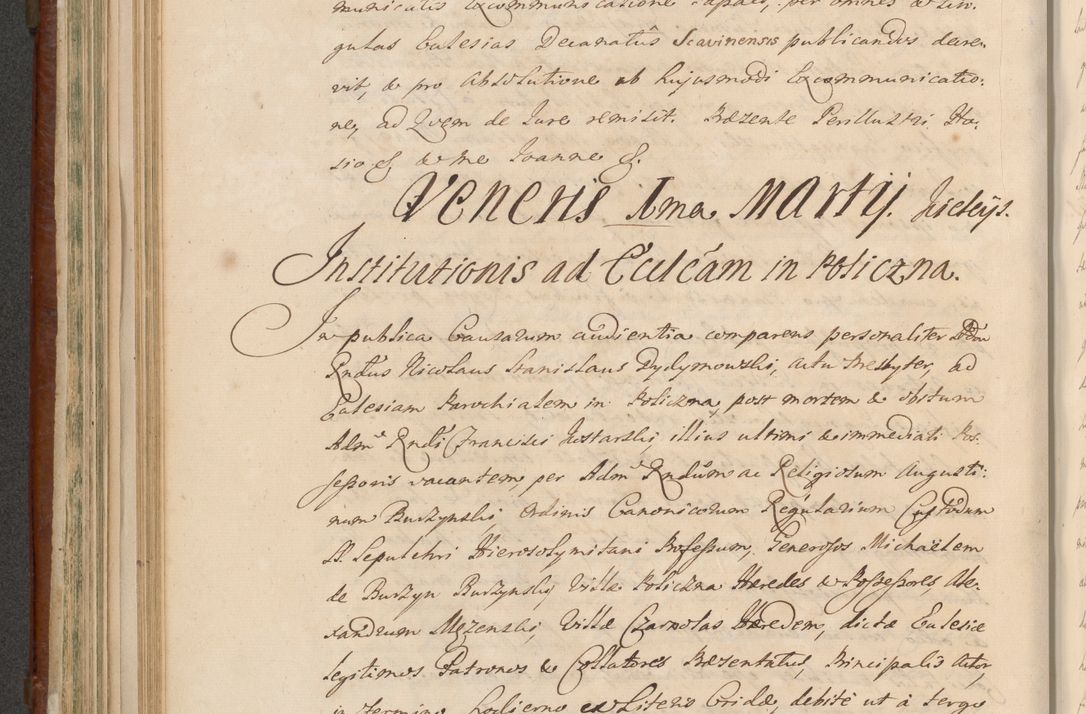 municatis Excommunicatione capaci, per omnes & sin-
gulas Eclesias Decanatûs Scavinensis publicandos decre-
vit, & pro absolutione ab hujusmodi Excommunicatio-
ne, ad Quem de Jure remisit. Præsente Perillustri Ha-
sio & & me Joanne &.
Veneris 1ma Martij. Kielcijs.
Institutionis ad Ecclêam in Policzna.
In publica Causarum audientia comparens personaliter
Rndus Nicolaus Stanislaus Dydymowski, actu Presbyter, ad
Eclesiam Parochialem in Policzna, post mortem & obitum
Admd Rndi Francisci Justarski illius ultimi & immediati Pos-
sessoris vacantem, per Admd Rndum ac Religiosum Augusti-
num Burzynski, Ordinis Canonicorum Regularium Custodum
S. Sepulchri Hierosolymitani Professum, Generosos Michaëlem
de Burzyn Burzynski, Villæ Policzna Heredes & Possessores, Ale-
xandrum Mzenski, Villæ Czarnolas Hæredem, dictæ Eclesiæ
legitimos Patronos & Collatores Præsentatus, Principalis Actor,
in termino hodierno ex Literis Cridæ, debitè ut à tergo